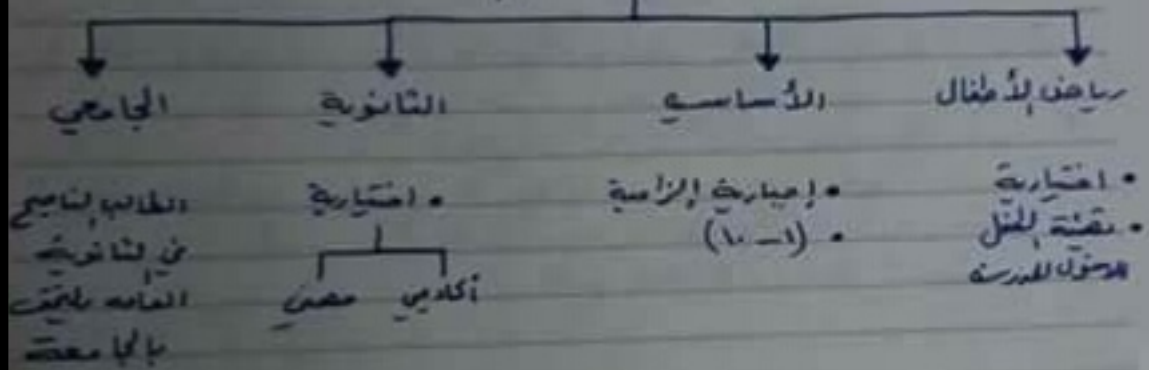 رياض الأطفال
• اختيارية
• تهيئة الطفل
لدخول المدرسة
الأساسي
• إجبارية إلزامية
• (١ - ١٠)
الثانوية
• اختيارية
أكاديمي مهني
الجامعي
الطالب الناجح
في الثانوية
العامه يلتحق
بالجامعة